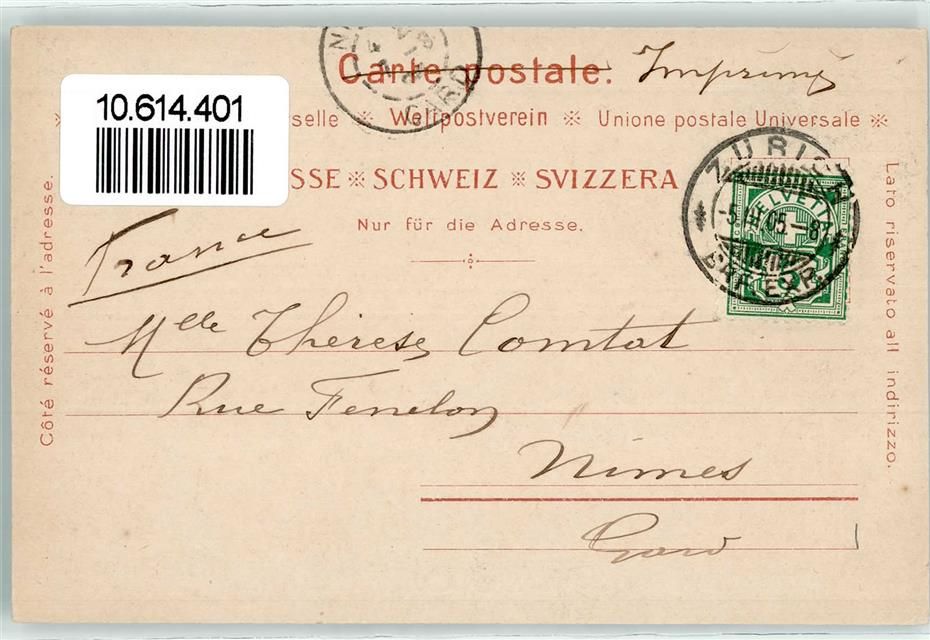 Carte postale. Imprimé
10.614.401
selle ※ Weltpostverein ※ Unione postale Universale ※
SSE ※ SCHWEIZ ※ SVIZZERA
Nur für die Adresse.
Côté réservé à l'adresse.
Lato riservato all indirizzo.
ZÜRICH
-5. 05.-8
BRF. EXP.
HELVETIA
GARD
France
Mlle Thérèse Comtat
Rue Fenelon
Nimes
Gard